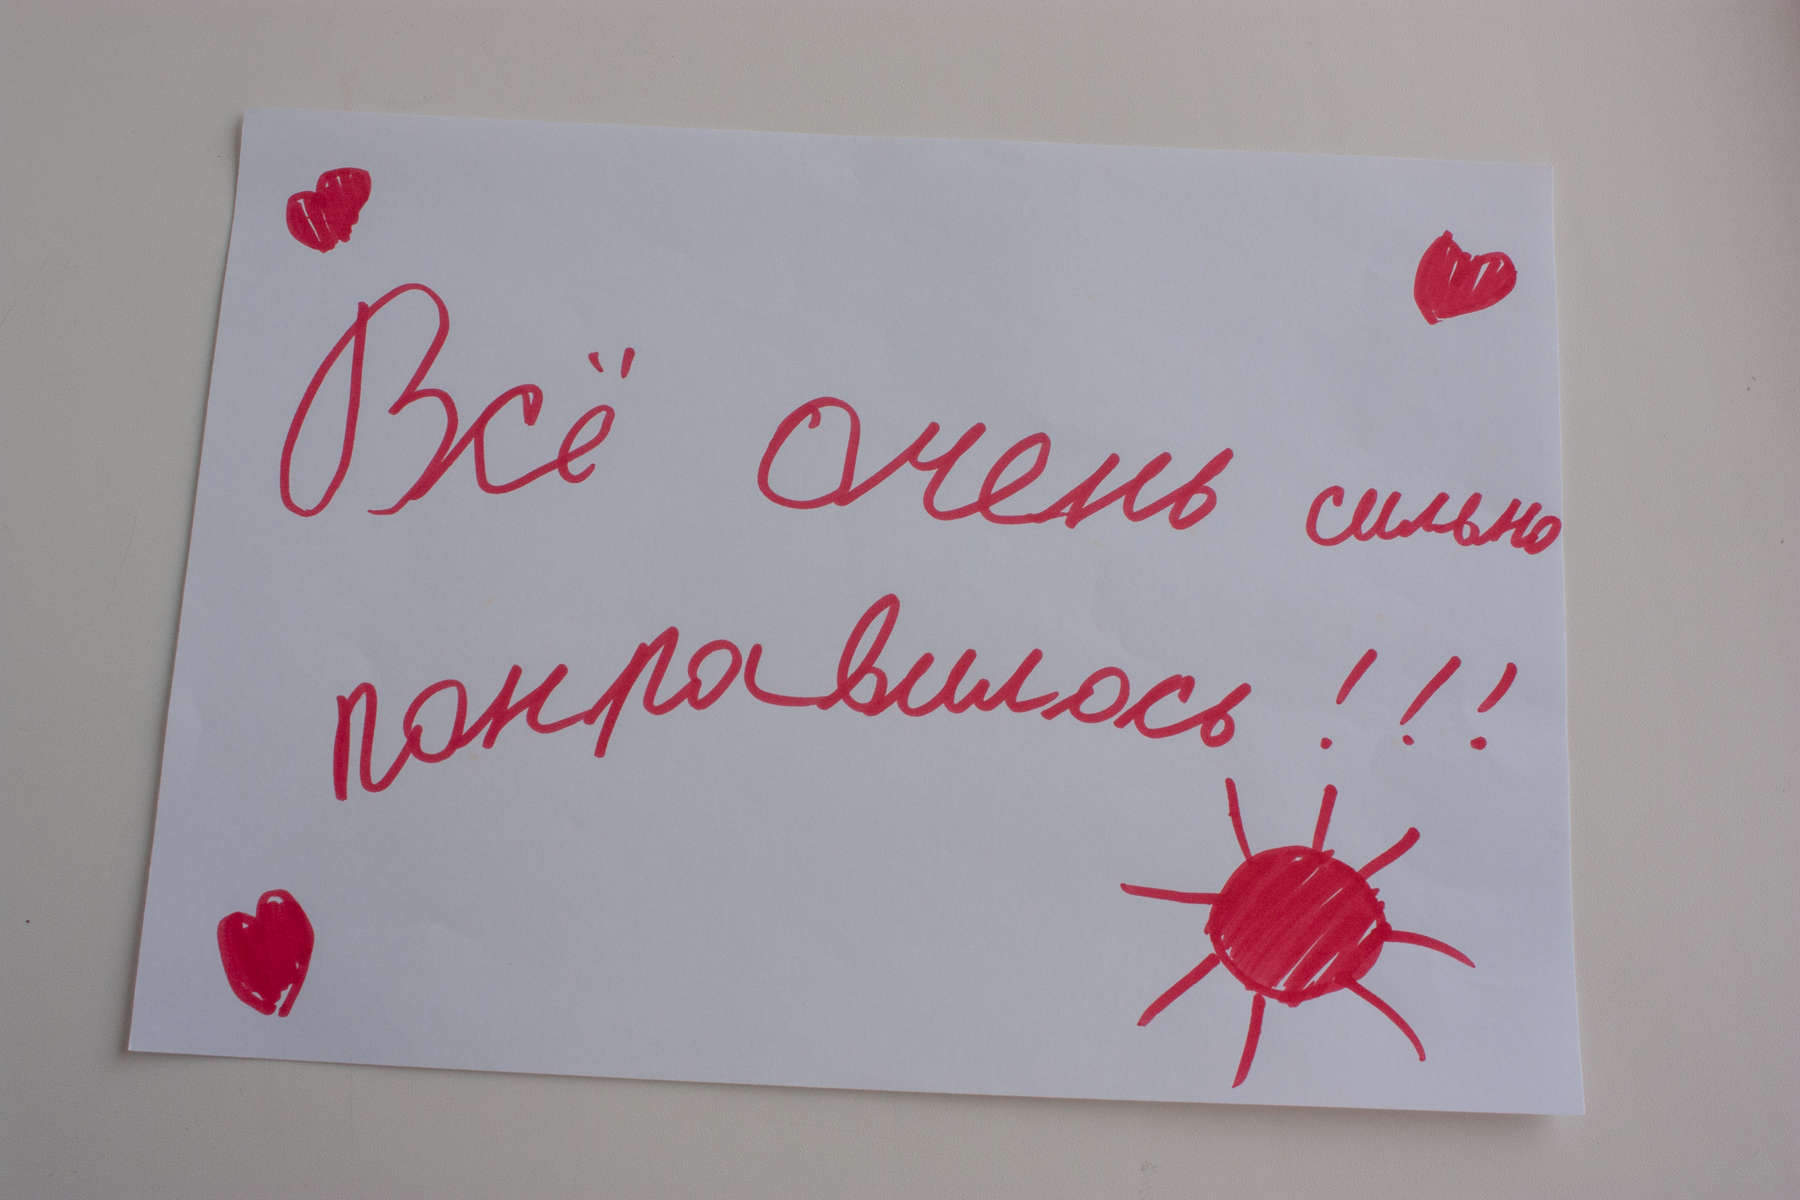 Всё очень сильно
понравилось!!!